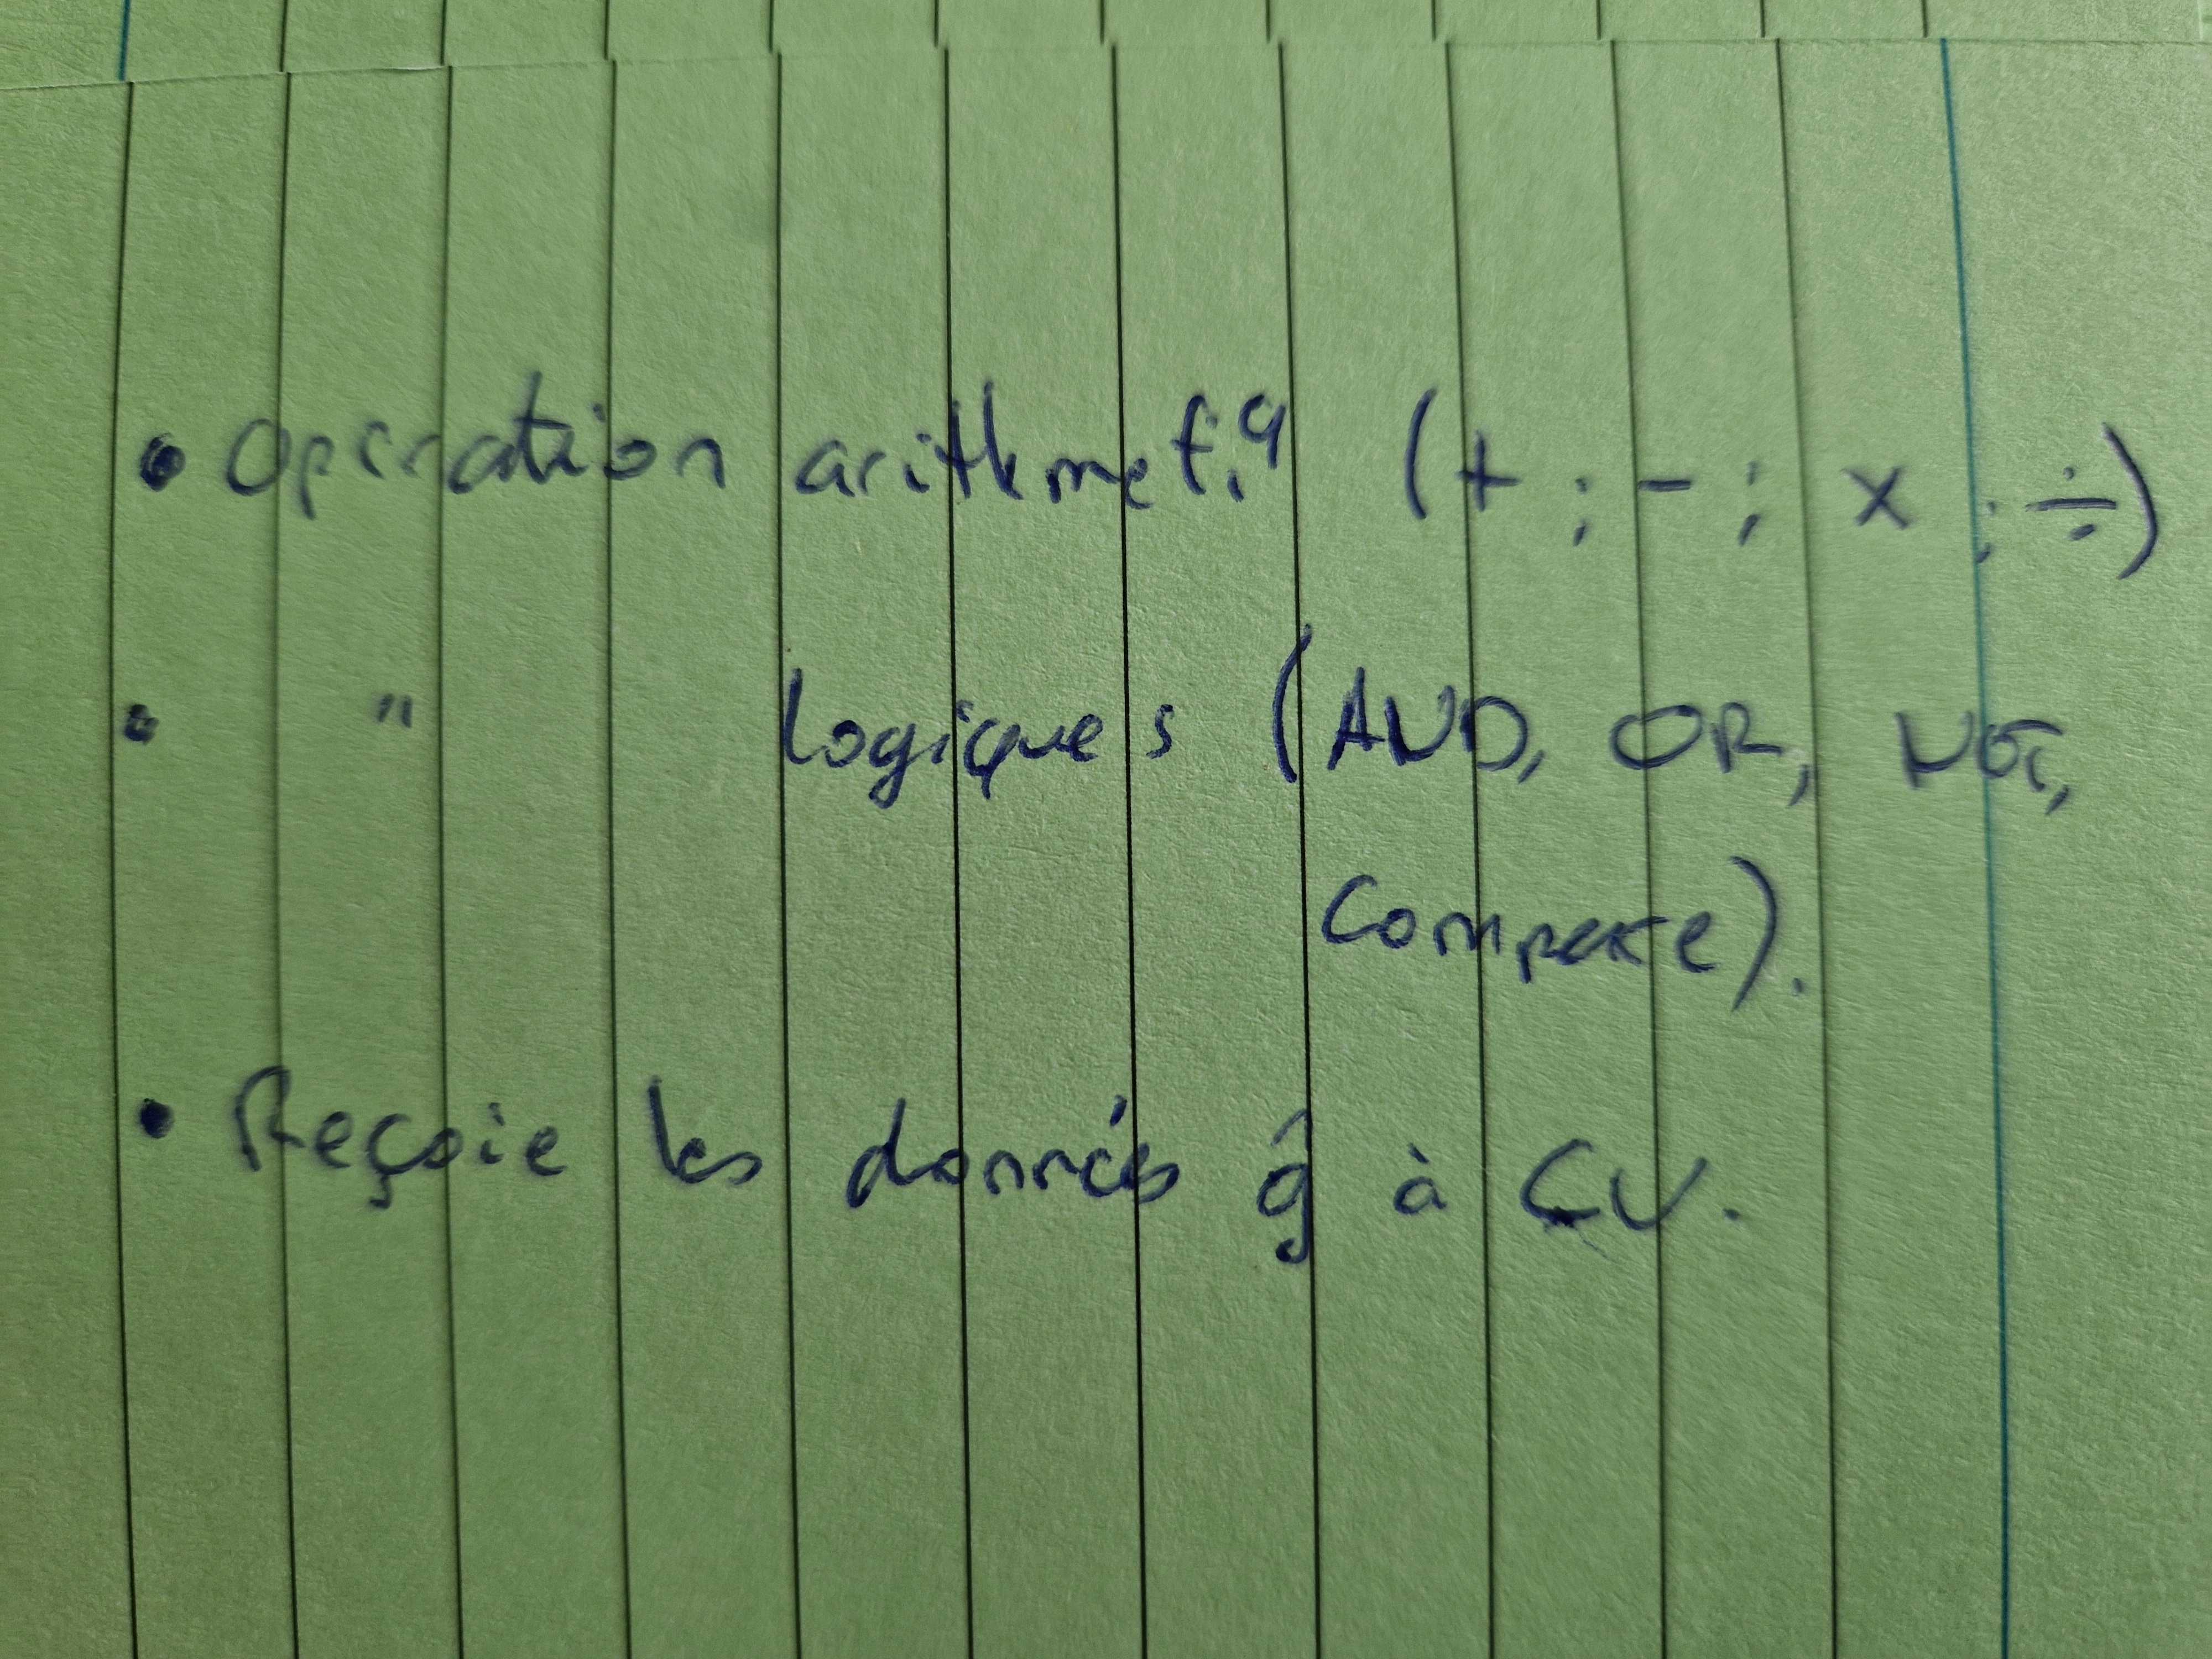 • Operation arithmetiq (+ ; - ; x ; ÷)
• " logiques (AND, OR, NOT,
Compare).
• Reçoie les données ĝ à CU.